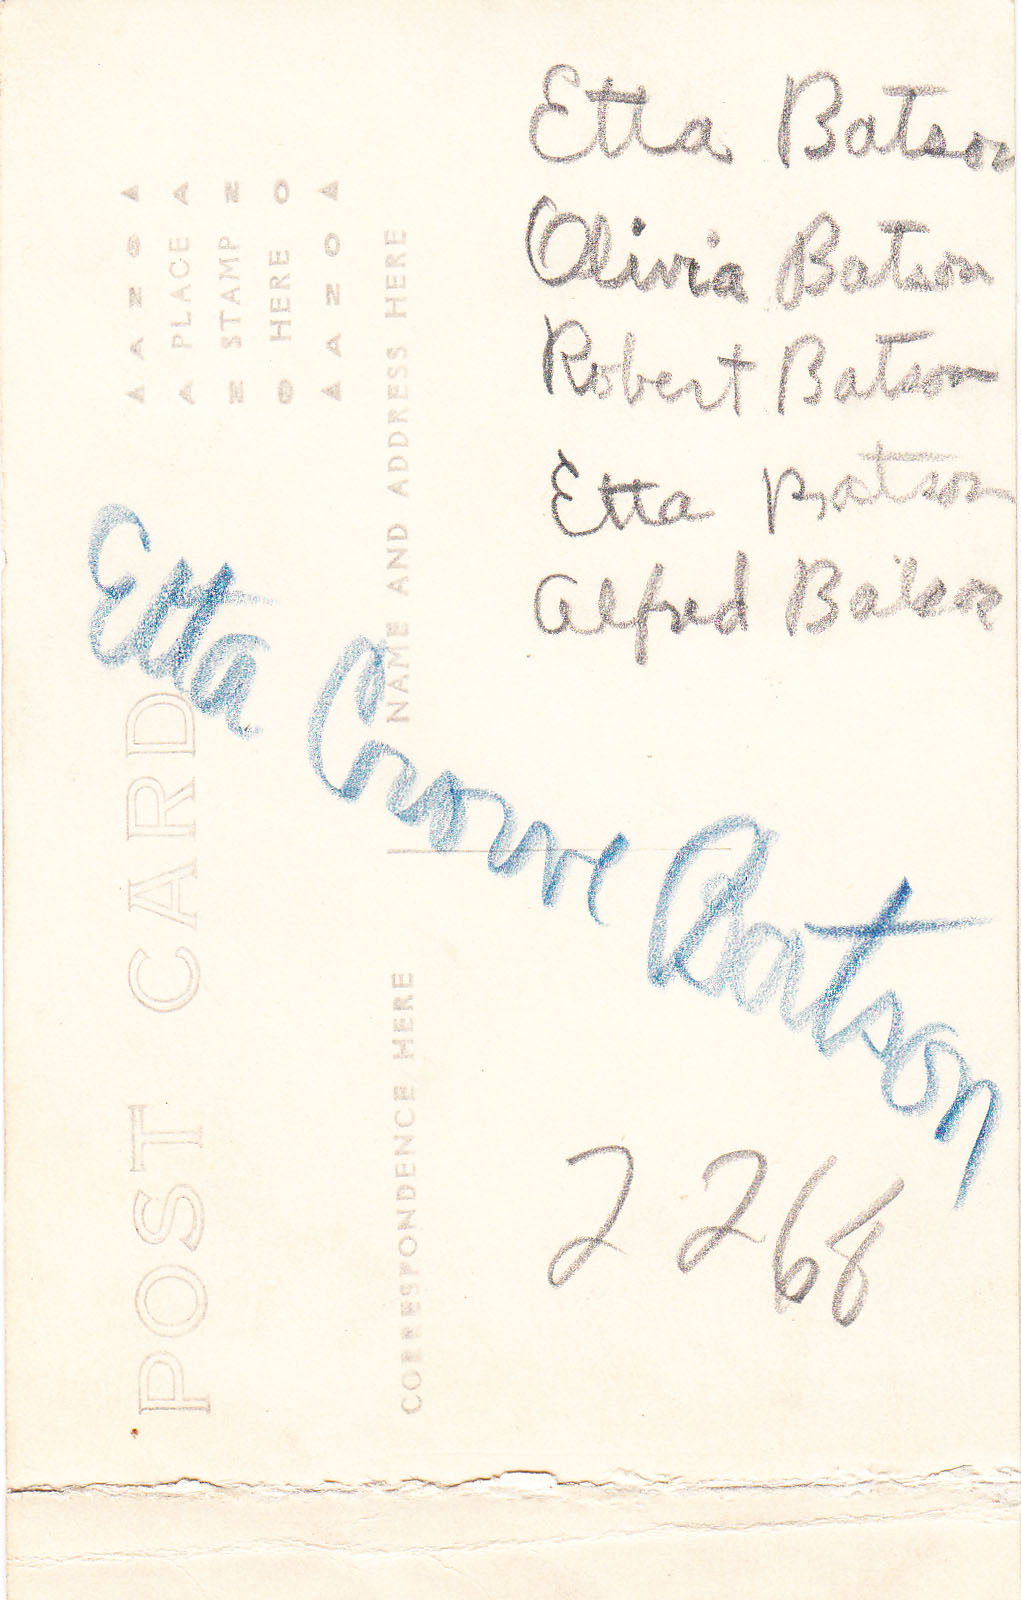 Etta Batson
Olivia Batson
Robert Batson
Etta Batson
Alfred Batson
Etta Crowe Batson
2268
POST CARD
CORRESPONDENCE HERE
NAME AND ADDRESS HERE
AZO
PLACE
STAMP
HERE
AZO